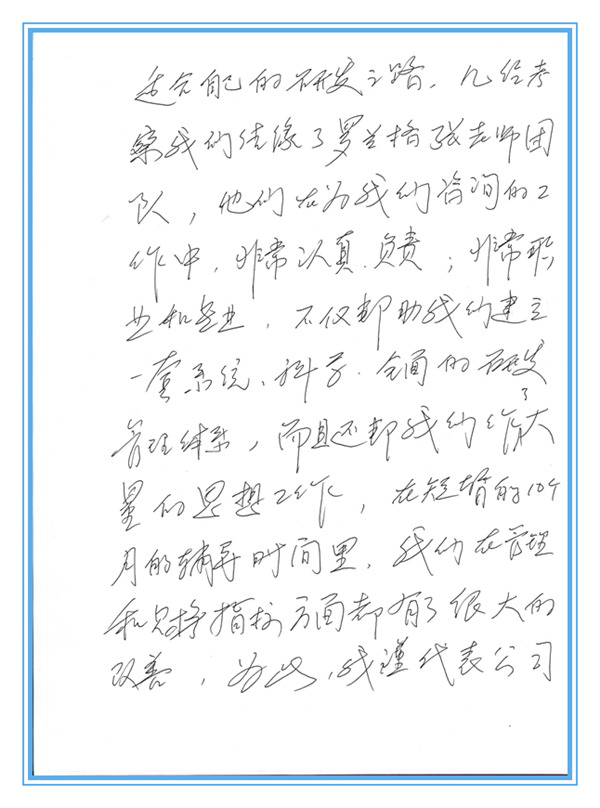 适合自己的研发之路，几经考
察我们结缘了罗兰格张老师团
队，他们在为我们咨询的工
作中，非常认真、负责；非常职
业和专业，不仅帮助我们建立
一套系统、科学、全面的研发
管理体系，而且还帮我们作了大
量的思想工作，在短暂的10个
月的辅导时间里，我们在管理
和竞争指标方面都有了很大的
改善，为此，我谨代表公司